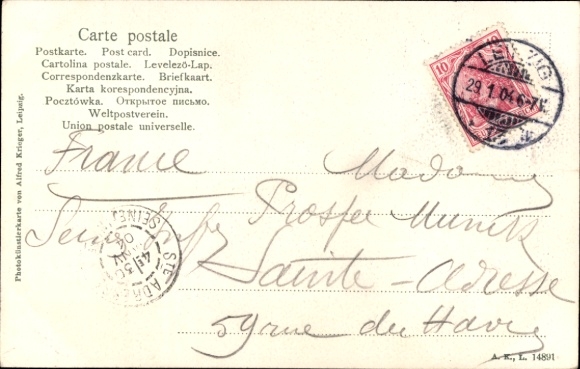 Carte postale
Postkarte. Post card. Dopisnice.
Cartolina postale. Levelező-Lap.
Correspondenzkarte. Briefkaart.
Karta korespondencyjna.
Pocztówka. Открытое письмо.
Weltpostverein.
Union postale universelle.
Photokünstlerkarte von Alfred Krieger, Leipzig.
10
LEIPZIG
29.1.04.6-7N.
France
Madame
Prosper
Seine Inf
Sainte-Adresse
59 rue du Havre
STE ADRESSE
SEINE
30
04
A. K., L. 14891